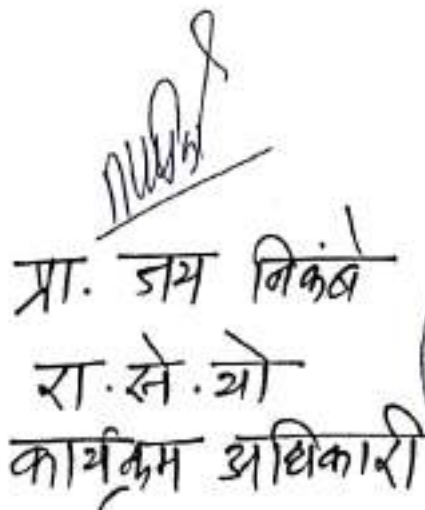 प्रा. जय निकंबे
रा.से.यो
कार्यक्रम अधिकारी